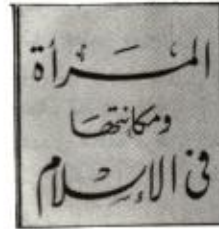 المرأة
ومكانتها
في الإسلام